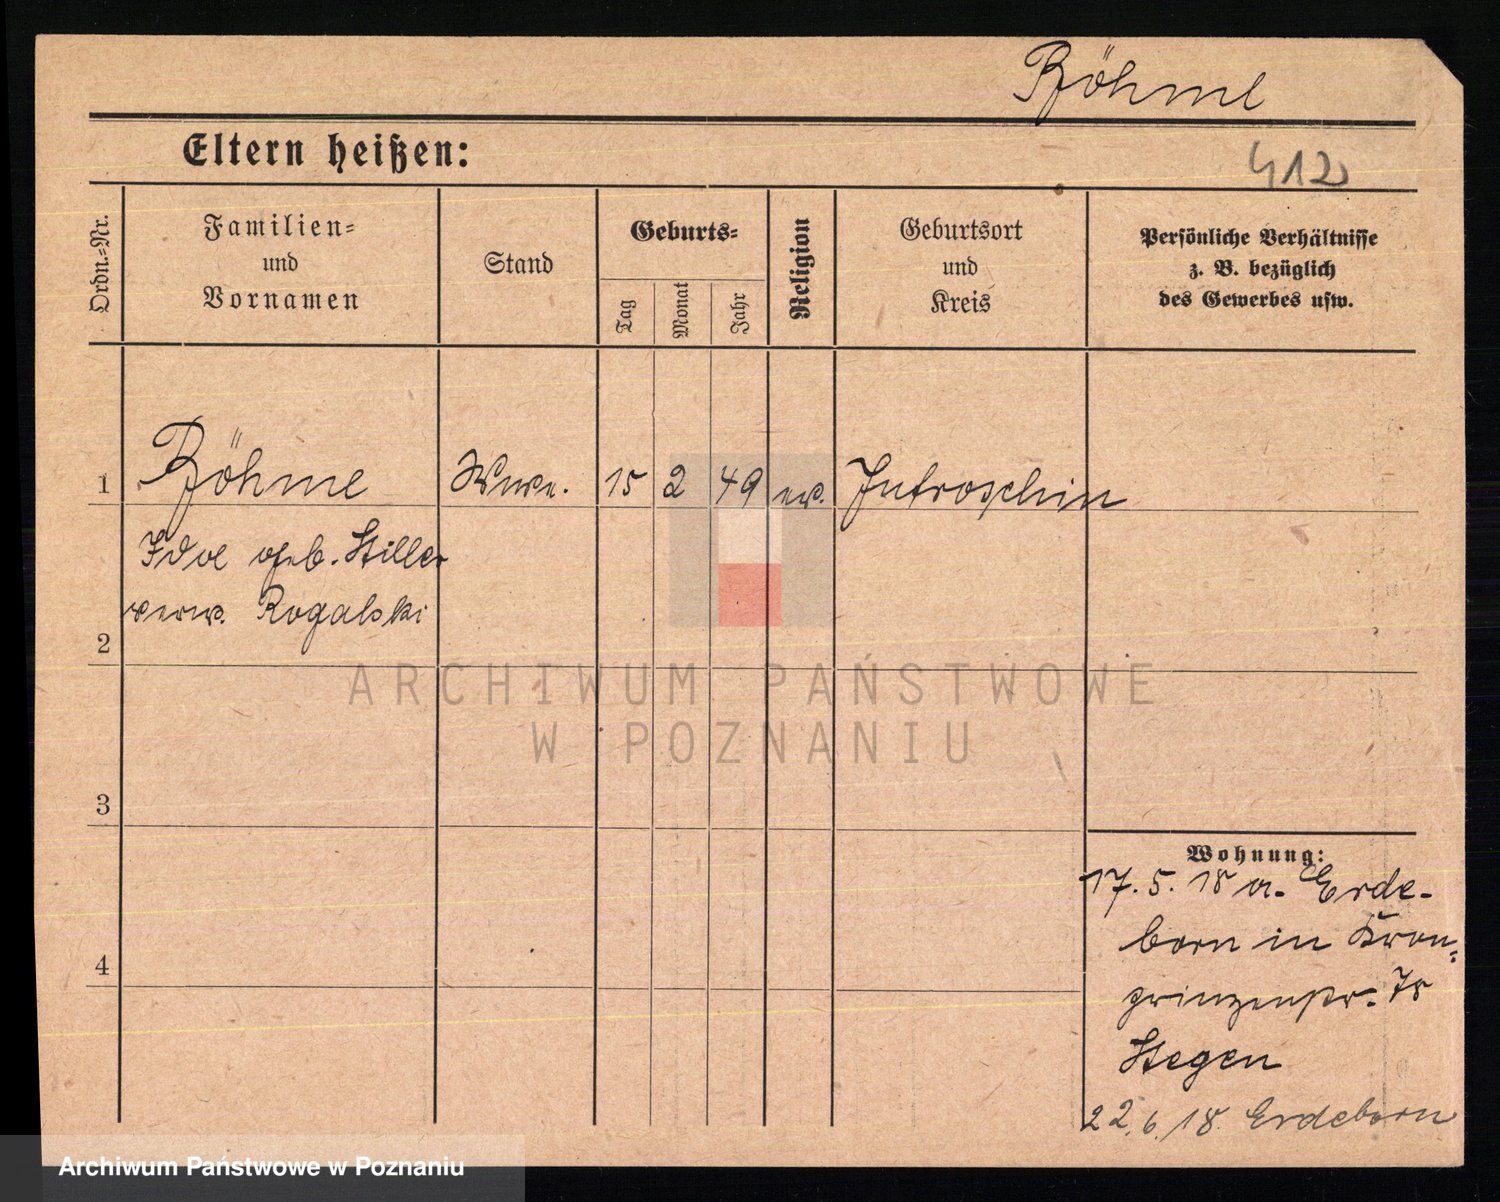 Böhme
Eltern heißen:
412
Ordn.-Nr.
Familien-
und
Vornamen
Stand
Geburts-
Tag
Monat
Jahr
Religion
Geburtsort
und
Kreis
Persönliche Verhältnisse
z. B. bezüglich
des Gewerbes usw.
1 Böhme Wwe. 15 2 49 ev. Jutroschin
Ida geb. Stiller
verw. Rogalski
2
ARCHIWUM PAŃSTWOWE
W POZNANIU
3
4
Wohnung:
17. 5. 18 a. Erde-
born in Kron-
prinzenstr. 78
Stegen
22. 6. 18. Erdeborn
Archiwum Państwowe w Poznaniu